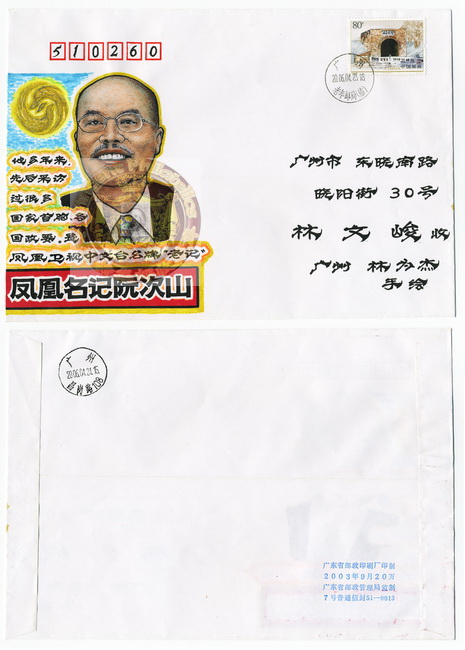 510260
80分
广州
2006.04.23.18
他多年来,
先后采访
过很多
国家首脑,各
国政要,是
凤凰卫视中文台名牌“老记”
凤凰名记阮次山
广州市 东晓南路
晓阳街 30号
林文峻收
广州 林分杰
手绘
广州
2006.04.24.15
广东省邮政印刷厂印制
2003年9月20万
广东省邮政管理局监制
7号普通信封51—0013